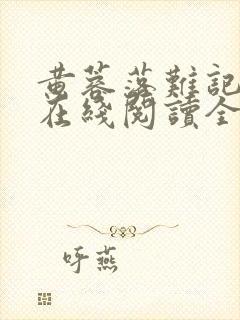 黄蓉落難記
在綫閱讀全
呼燕